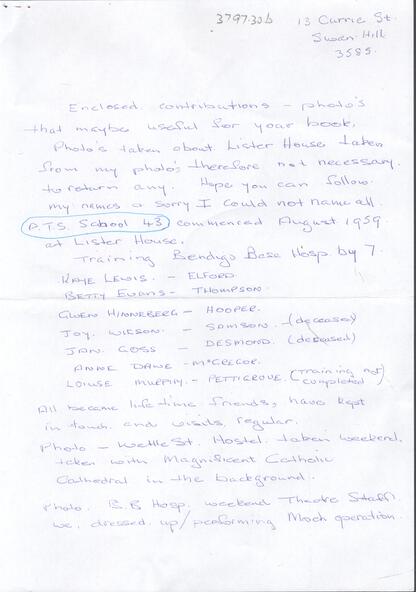 3797.30b
13 Currie St.
Swan Hill
3585.
Enclosed contributions - photo's
that maybe useful for your book.
Photo's taken about Lister House taken
from my photo's therefore not necessary
to return any. Hope you can follow
my names & sorry I could not name all.
P.T.S. School 43 commenced August 1959
at Lister House.
Training Bendigo Base Hosp. by 7.
KAYE LEWIS. - ELFORD.
BETTY EVANS - THOMPSON.
GWEN HINNEBERG - HOOPER.
JOY. WILSON - SAMSON - (deceased)
JAN. GOSS - DESMOND. (deceased)
ANNE DAWE - McGREGOR.
LOUISE MURPHY - PETTIGROVE. (training not completed)
All became life time friends, have kept
in touch and visits, regular.
Photo - Wattle St. Hostel. taken weekend.
taken with Magnificent Catholic
Cathedral in the background.
Photo. B.B Hosp. weekend Theatre Staff.
we, dressed up/performing Mock operation.